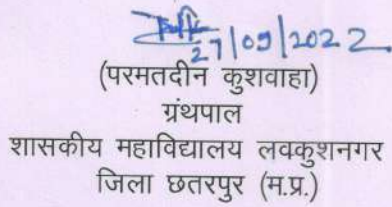 27/09/2022
(परमतदीन कुशवाहा)
ग्रंथपाल
शासकीय महाविद्यालय लवकुशनगर
जिला छतरपुर (म.प्र.)